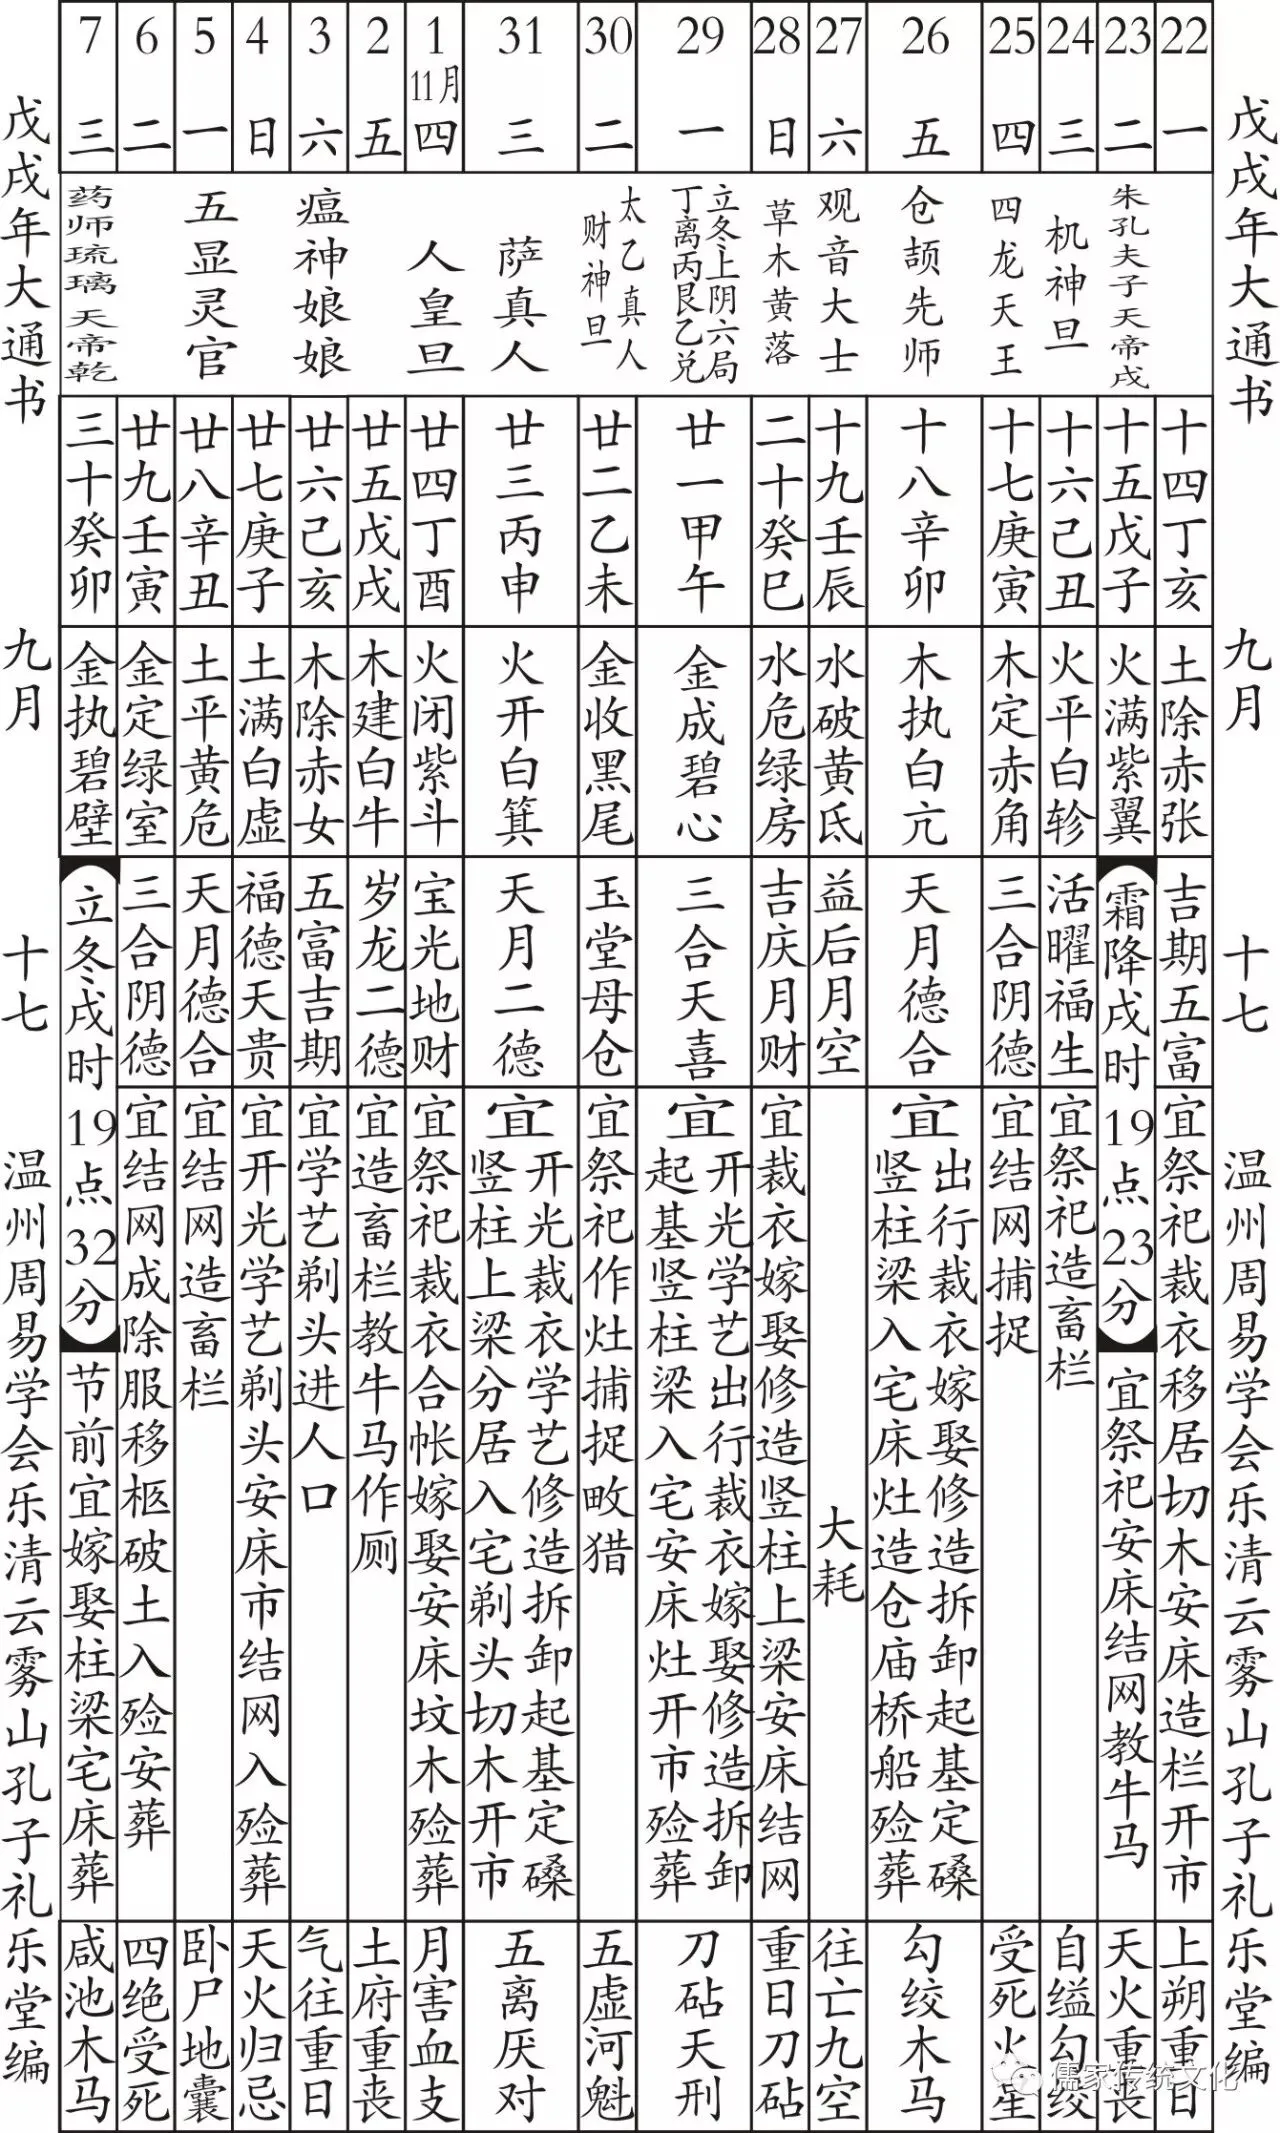 戊戌年大通书
九月
十七
温州周易学会乐清云雾山孔子礼乐堂编
22
一
十四丁亥
土除赤张
吉期五富
宜祭祀裁衣移居切木安床造栏开市
上朔重日
23
二
朱孔夫子天帝戌
十五戊子
火满紫翼
霜降戌时19点23分
宜祭祀安床结网教牛马
天火重丧
24
三
机神旦
十六己丑
火平白轸
活曜福生
宜祭祀造畜栏
自缢勾绞
25
四
四龙天王
十七庚寅
木定赤角
三合阴德
宜结网捕捉
受死火星
26
五
仓颉先师
十八辛卯
木执白亢
天月德合
宜
出行裁衣嫁娶修造拆卸起基定磉
竖柱梁入宅床灶造仓庙桥船殓葬
勾绞木马
27
六
观音大士
十九壬辰
水破黄氐
益后月空
大耗
往亡九空
28
日
草木黄落
二十癸巳
水危绿房
吉庆月财
宜裁衣嫁娶修造竖柱上梁安床结网
重日刀砧
29
一
立冬上阴六局
丁离丙艮乙兑
廿一甲午
金成碧心
三合天喜
宜
开光学艺出行裁衣嫁娶修造拆卸
起基竖柱梁入宅安床灶开市殓葬
刀砧天刑
30
二
太乙真人
财神旦
廿二乙未
金收黑尾
玉堂母仓
宜祭祀作灶捕捉畋猎
五虚河魁
31
三
萨真人
廿三丙申
火开白箕
天月二德
宜
开光裁衣学艺修造拆卸起基定磉
竖柱上梁分居入宅剃头切木开市
五离厌对
1
11月
四
人皇旦
廿四丁酉
火闭紫斗
宝光地财
宜祭祀裁衣合帐嫁娶安床坟木殓葬
月害血支
2
五
廿五戊戌
木建白牛
岁龙二德
宜造畜栏教牛马作厕
土府重丧
3
六
瘟神娘娘
廿六己亥
木除赤女
五富吉期
宜学艺剃头进人口
气往重日
4
日
廿七庚子
土满白虚
福德天贵
宜开光学艺剃头安床市结网入殓葬
天火归忌
5
一
五显灵官
廿八辛丑
土平黄危
天月德合
宜结网造畜栏
卧尸地囊
6
二
廿九壬寅
金定绿室
三合阴德
宜结网成除服移柩破土入殓安葬
四绝受死
7
三
药师琉璃天帝乾
三十癸卯
金执碧壁
立冬戌时19点32分
节前宜嫁娶柱梁宅床葬
咸池木马
戊戌年大通书
九月
十七
温州周易学会乐清云雾山孔子礼乐堂编
儒家传统文化